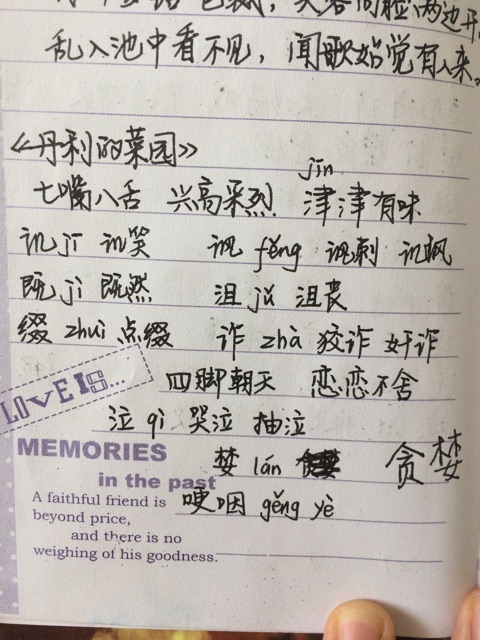 色裁,芙蓉向脸两边开
乱入池中看不见,闻歌始觉有人来。
《丹利的菜园》
jīn
七嘴八舌 兴高采烈 津津有味
讥 jī 讥笑 讽 fěng 讽刺 讥讽
既 jì 既然 沮 jǔ 沮丧
缀 zhuì 点缀 诈 zhà 狡诈 奸诈
LOVE IS...
四脚朝天 恋恋不舍
泣 qì 哭泣 抽泣
MEMORIES
婪 lán 贪婪
in the past
哽咽 gěng yè
A faithful friend is
beyond price,
and there is no
weighing of his goodness.